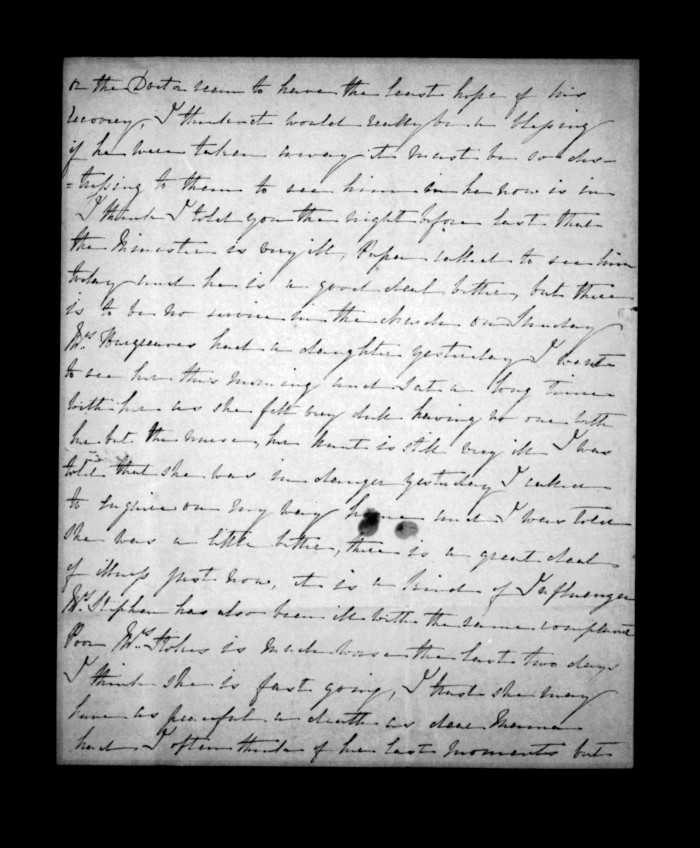 or the Doctor seem to have the least hope of his
recovery, I think it would really be a blessing
if he were taken away it must be so dis-
=tressing to them to see him in he now is in
I think I told you the night before last that
the Minister is very ill, Papa called to see him
today and he is a good deal better, but there
is to be no service in the church on Sunday
Mrs Hargreaves had a daughter yesterday I went
to see her this morning and sat a long time
with her as she felt very dull having no one with
her but the nurse, her Aunt is still very ill I was
told that she was in danger yesterday I called
to enquire on my way home and I was told
she was a little better, there is a great deal
of illness just now, it is a kind of Influenza
Mrs Stephen has also been ill with the same complaint
Poor Mrs Stokes is much worse the last two days
I think she is fast going, I trust she may
have as peaceful a death as dear Mama
had I often think of her last moments but